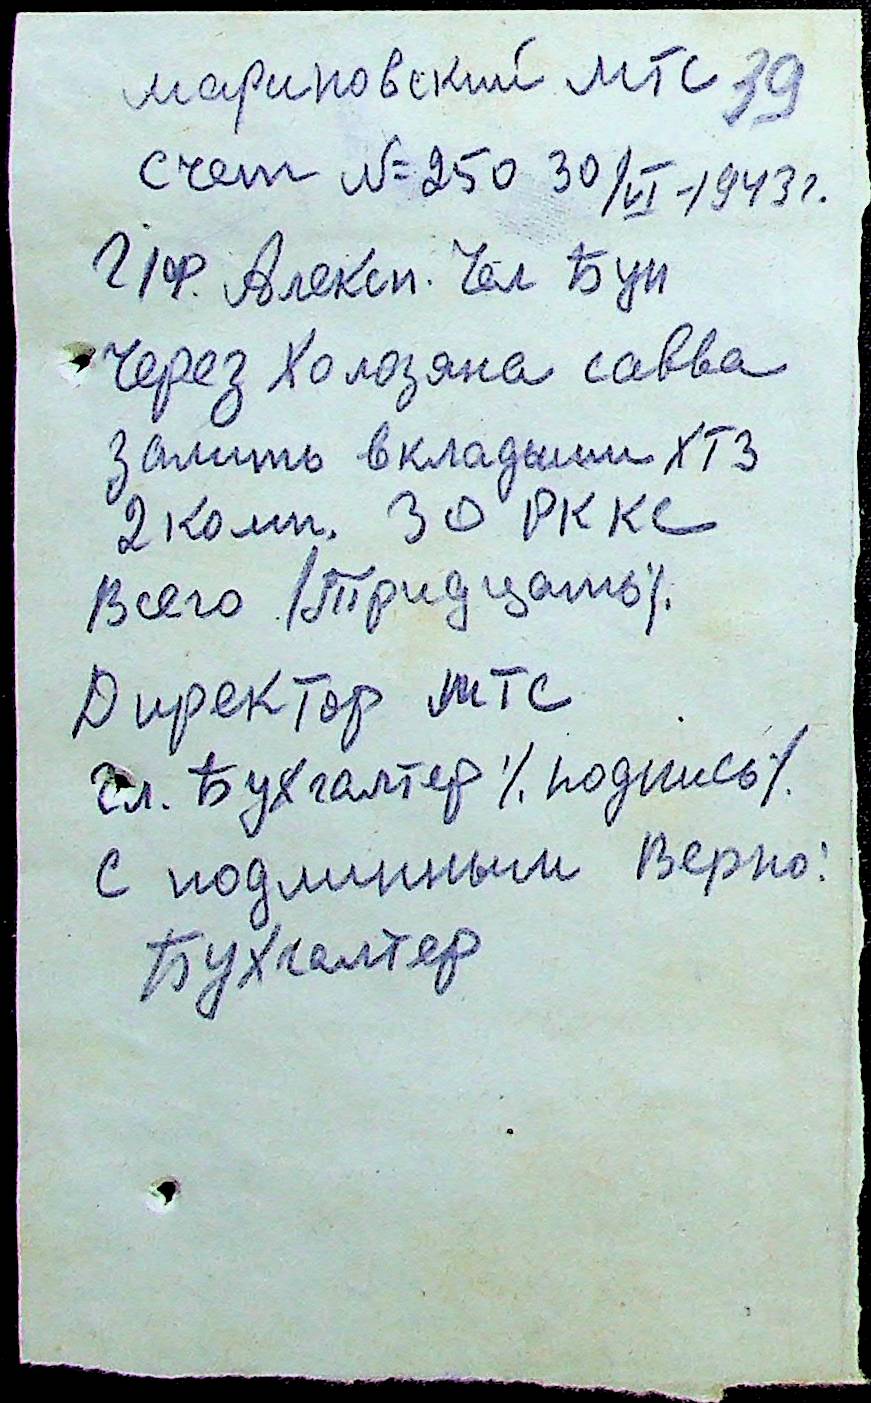 мариновский МТС 39
Счет №=250 30/VI-1943г.
Гр. Алексп. Чел Бун
Через Холозяна савва
залить вкладыши ХТЗ
2 комп. 30 РККС
Всего /Тридцать/.
Директор МТС
Гл. Бухгалтер /.подпись/.
С подлинным Верно:
Бухгалтер